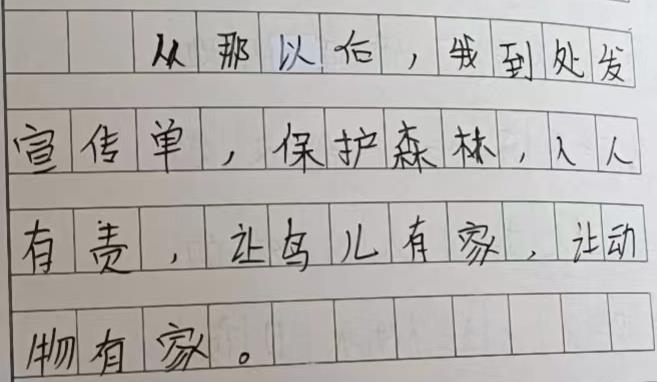 从那以后，我到处发
宣传单，保护森林，人人
有责，让鸟儿有家，让动
物有家。